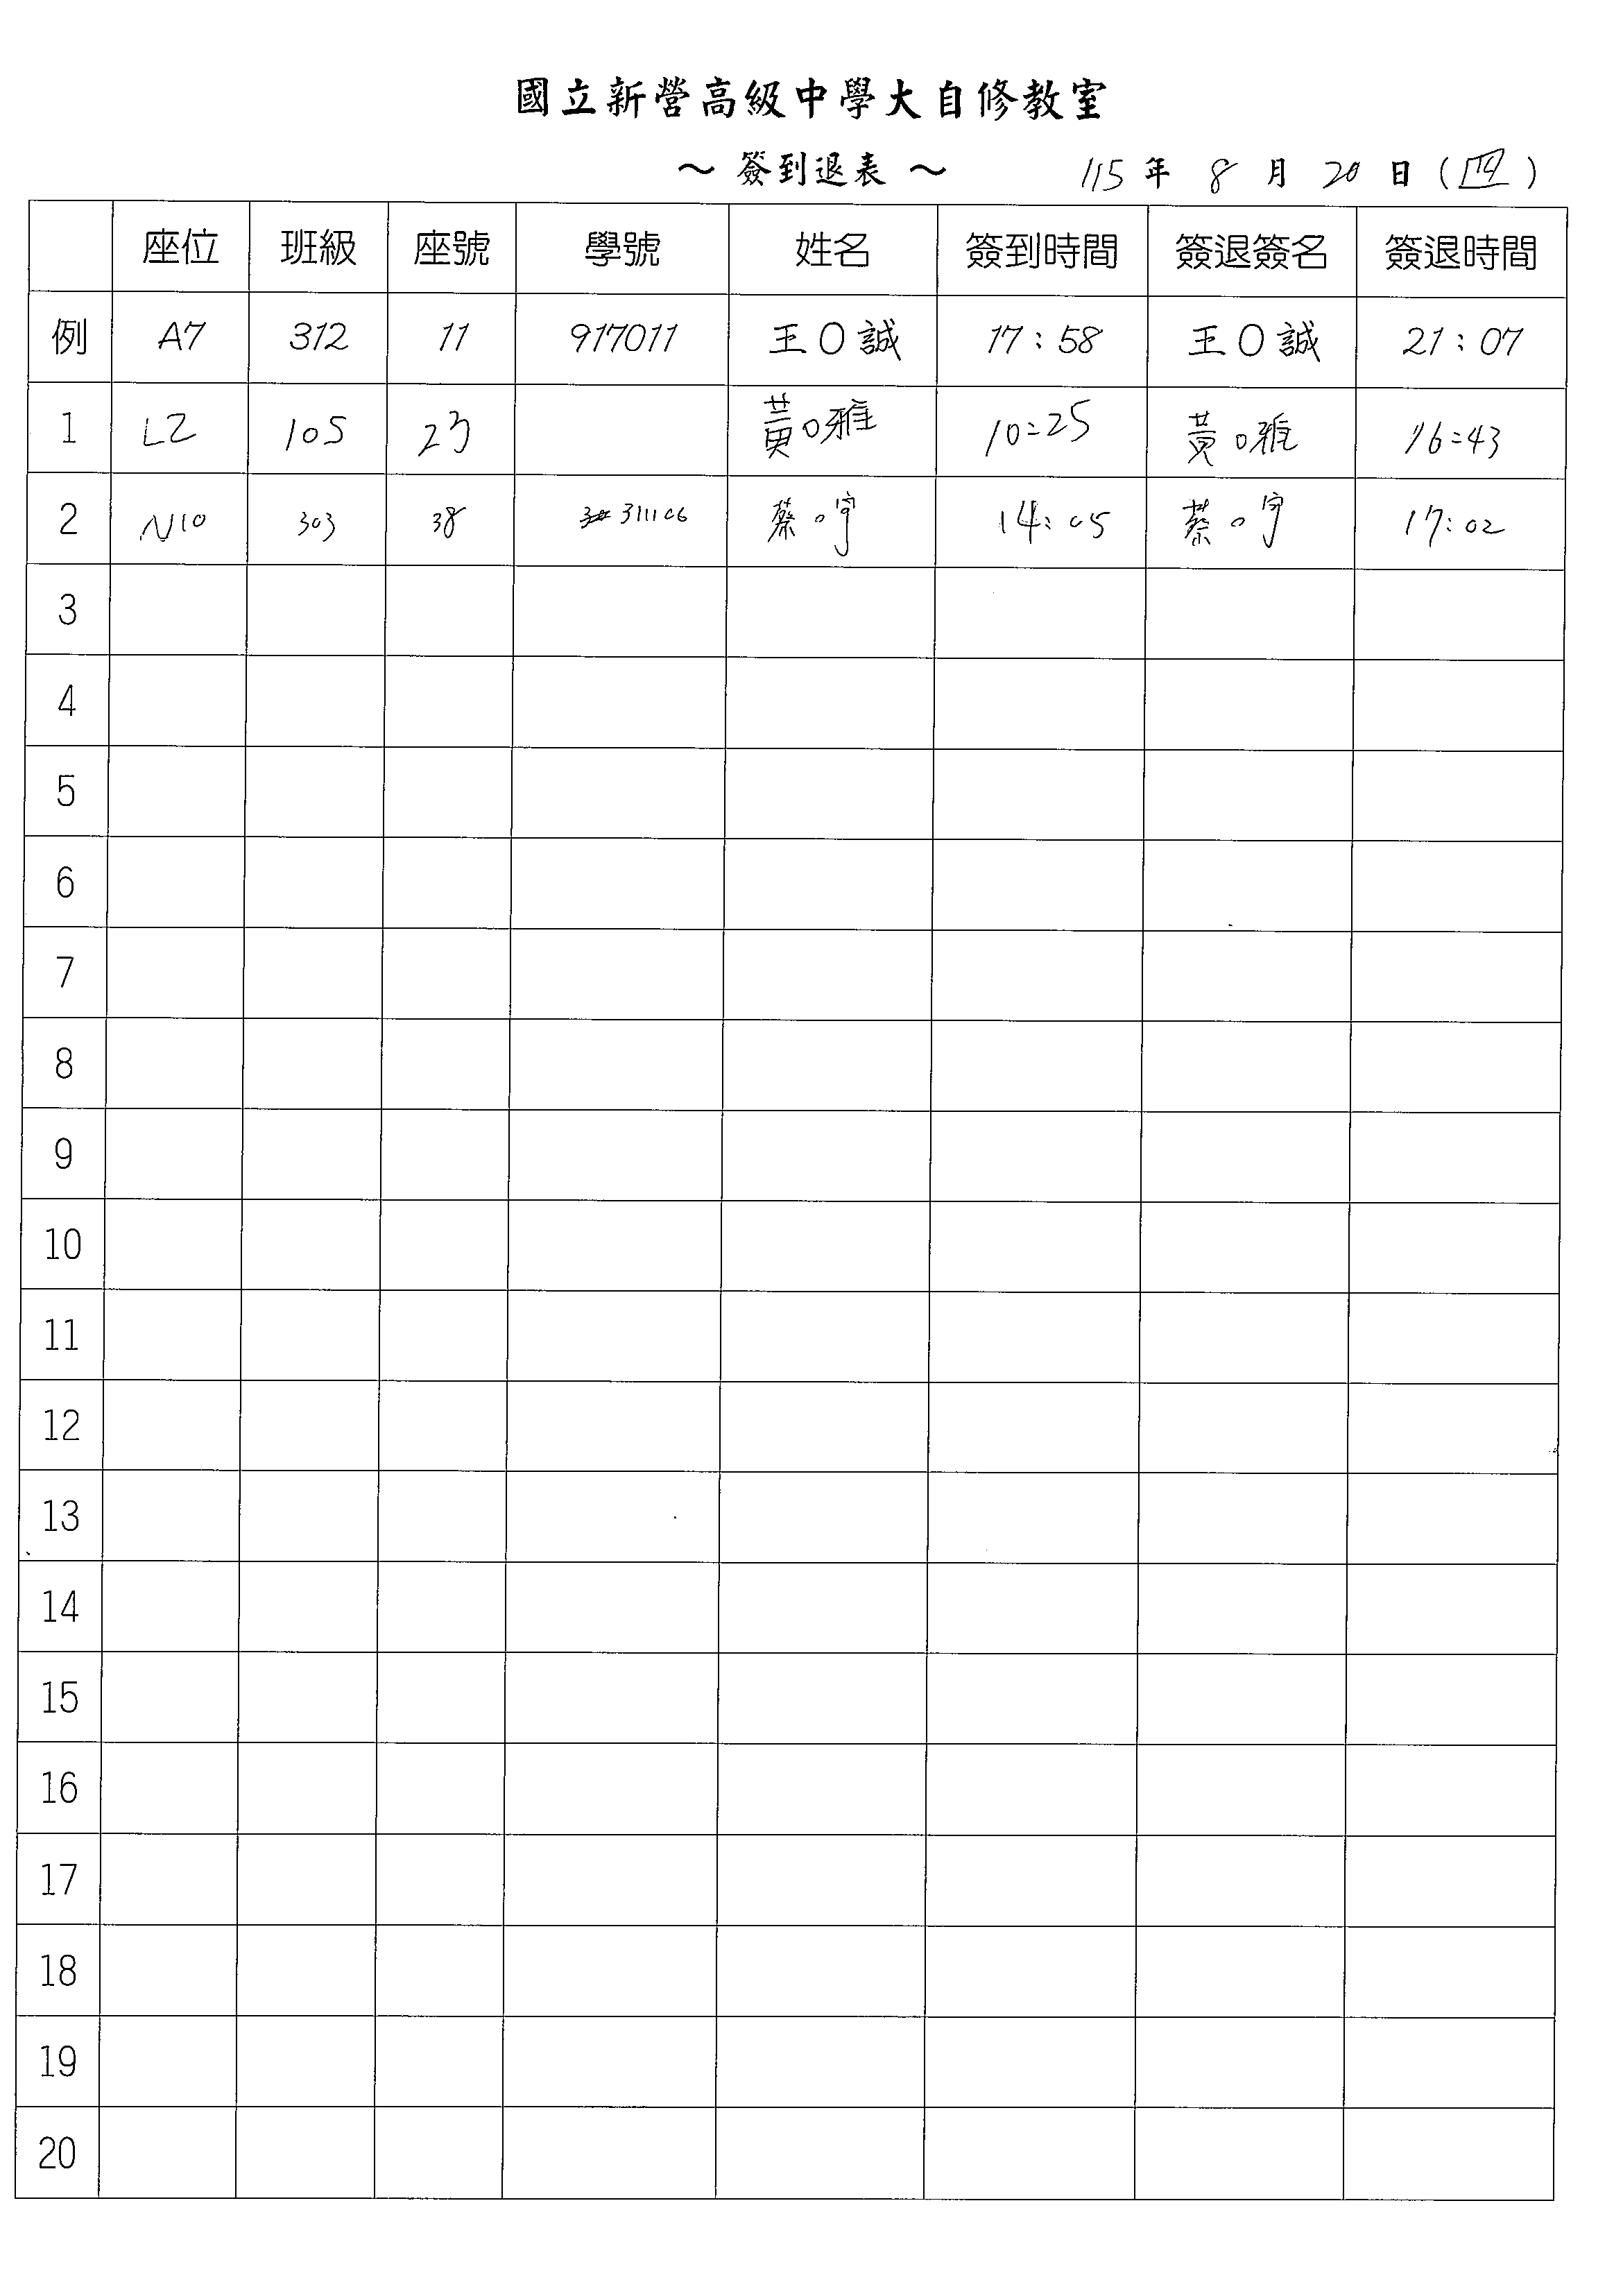 國立新營高級中學大自修教室
～ 簽到退表 ～ 115 年 8 月 20 日 (四)
座位 班級 座號 學號 姓名 簽到時間 簽退簽名 簽退時間
例 A7 312 11 917011 王O誠 17:58 王O誠 21:07
1 L2 105 23 黃O雅 10:25 黃O雅 16:43
2 N10 303 38 311106 蔡O宇 14:05 蔡O宇 17:02
3
4
5
6
7
8
9
10
11
12
13
14
15
16
17
18
19
20